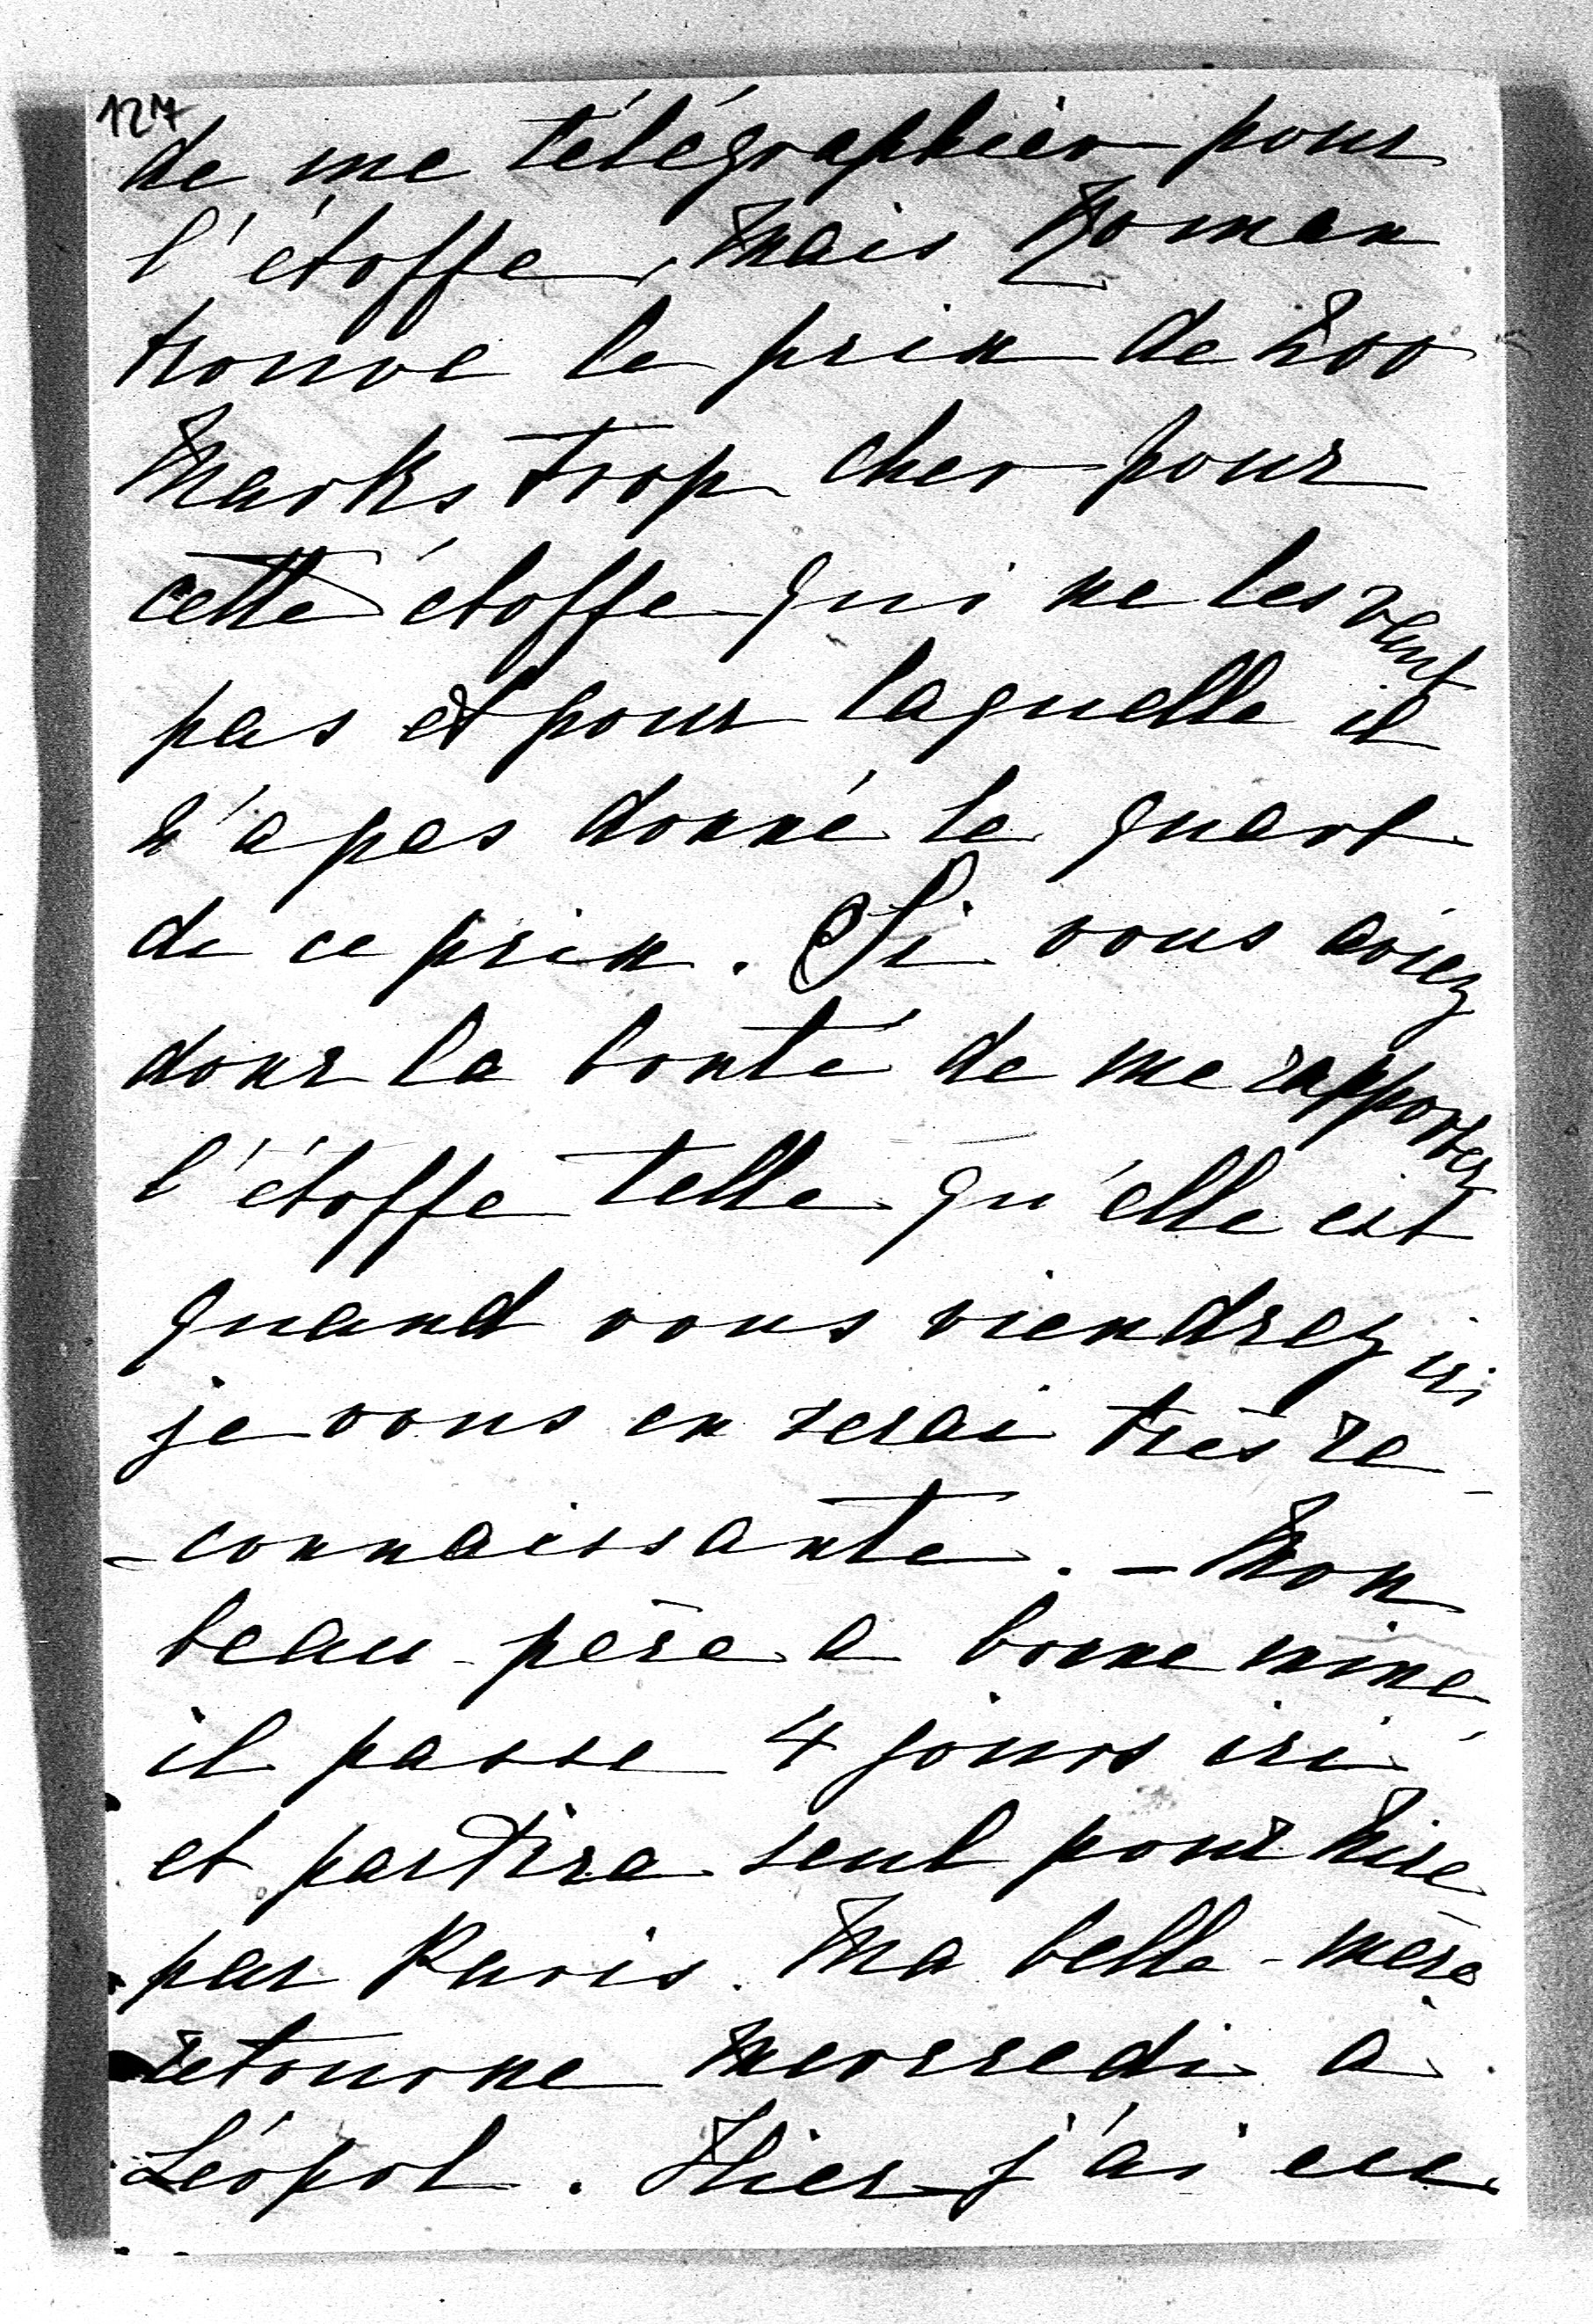 127
de me télégraphier pour
l'étoffe, Mais Roman
trouve le prix de 200
Marks trop cher pour
cette étoffe qui ne les vaut
pas et pour laquelle il
n'a pas donné le quart
de ce prix. Si vous aviez
donc la bonté de me rapporter
l'étoffe telle qu'elle est
quand vous viendrez ici
je vous en serai très re-
-connaissante. - Mon
beau-père a bonne mine,
il passe 4 jours ici
et partira seul pour Nice
par Paris. Ma belle-mère
retourne mercredi à
Léopol. Hier j'ai eue